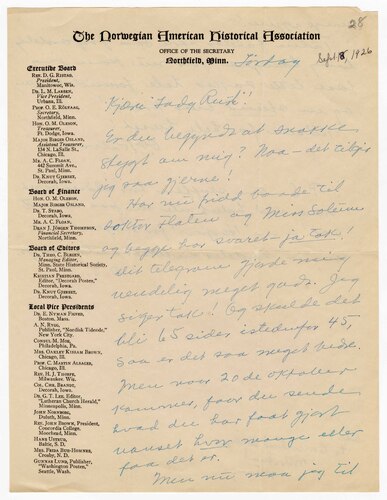 28
The Norwegian American Historical Association
OFFICE OF THE SECRETARY
Northfield, Minn.
Sept 8, 1926
Torsdag
Executive Board
REV. D. G. RISTAD,
President,
Manitowoc, Wis.
DR. L. M. LARSEN,
Vice President,
Urbana, Ill.
PROF. O. E. RÖLVAAG,
Secretary,
Northfield, Minn.
HON. O. M. OLESON,
Treasurer,
Ft. Dodge, Iowa.
MAJOR BIRGER OSLAND,
Assistant Treasurer,
134 N. LaSalle St.,
Chicago, Ill.
MR. A. C. FLOAN,
442 Summit Ave.,
St. Paul, Minn.
DR. KNUT GJERSET,
Decorah, Iowa.
Board of Finance
HON. O. M. OLESON,
MAJOR BIRGER OSLAND,
DR. T. STABO,
Decorah, Iowa,
MR. A. C. FLOAN,
DEAN J. JÖRGEN THOMPSON,
Financial Secretary,
Northfield, Minn.
Board of Editors
DR. THEO. C. BLEGEN,
Managing Editor,
Minn. State Historical Society,
St. Paul, Minn.
KRISTIAN PRESTGARD,
Editor, "Decorah Posten,"
Decorah, Iowa,
DR. KNUT GJERSET,
Decorah, Iowa.
Local Vice Presidents
Boston, Mass.
A. N. RYGG,
Publisher, "Nordisk Tidende,"
New York City.
CONSUL MOE,
Philadelphia, Pa.
MRS. OAKLEY KISSAM BROWN,
Chicago, Ill.
PROF. C. MARTIN ALSAGER,
Chicago, Ill.
REV. H. J. THORPE,
Milwaukee, Wis.
COL. CHR. BRANDT,
Decorah, Iowa.
DR. G. T. LEE, Editor,
"Lutheran Church Herald,"
Minneapolis, Minn.
JOHN NORMOE,
Duluth, Minn.
REV. JOHN BROWN, President,
Concordia College,
Moorhead, Minn.
HANS USTRUD,
Baltic, S. D.
MRS. FRIDA BUE-HOMNES,
Crosby, N. D.
GUNNAR LUND, Publisher,
"Washington Posten,"
Seattle, Wash.
Kjære Lady Ruud!
Er du begyndt at snakke
stygt om mig? Naa - det tilgir
jeg saa gjerne!
Har nu faid baade til
doktor Flaten og Miss Solum
og begge har svaret - ja tak!
dit telegram gjorde mig
uendelig meget godt. Jeg
siger tak! Og skulde det
bli 65 sider istedenfor 45,
saa er det saa meget bedre.
Men naar 20de oktober
kommer, faar du sende
hvad du har faat gjort
uanset hvor mange eller
faa det er.
Men nu maa jeg til